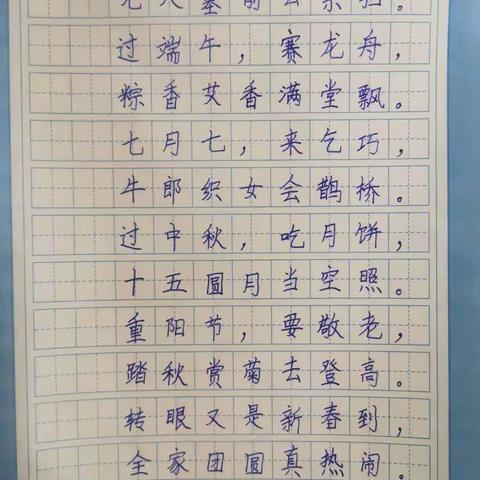 过端午，赛龙舟，
粽香艾香满堂飘。
七月七，来乞巧，
牛郎织女会鹊桥。
过中秋，吃月饼，
十五圆月当空照。
重阳节，要敬老，
踏秋赏菊去登高。
转眼又是新春到，
全家团圆真热闹。